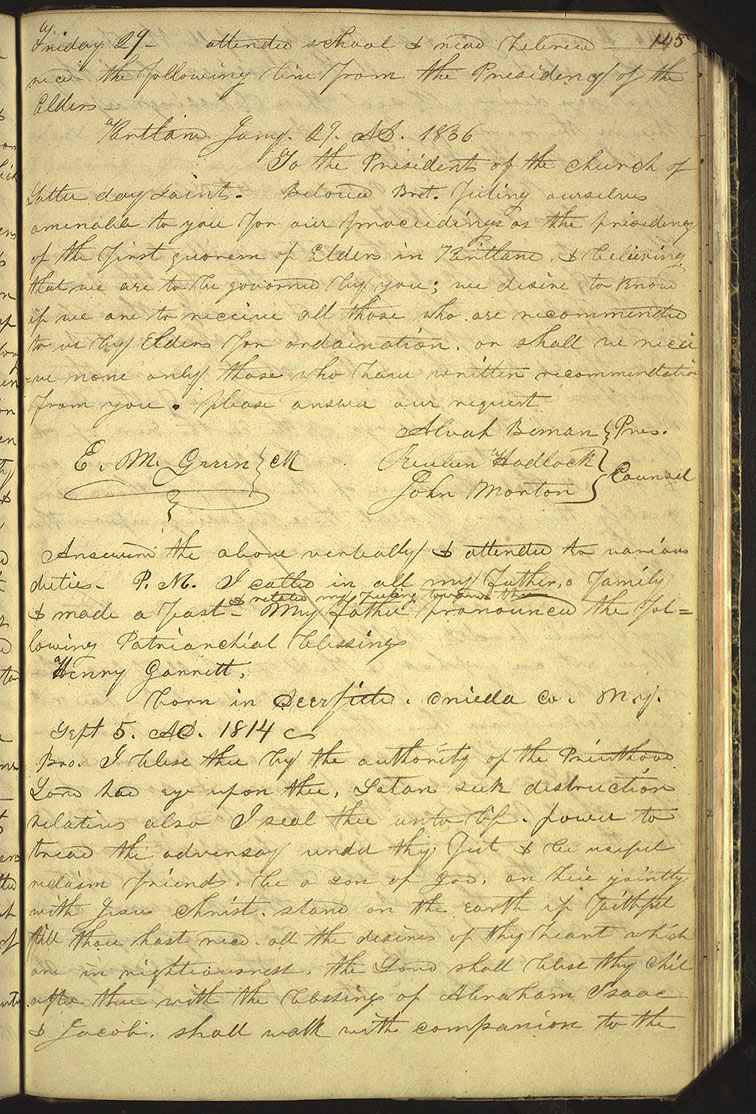 Friday 29— attended school & read hebrew— 145
recd the following line from the Presidency of the
Elders
Kirtland Jany. 29. AD. 1836
To the Presidents of the church of
Latter day Saints. Beloved Bret. Feeling ourselves
amenable to you for our proceedings as the presidency
of the first quorem of Elders in Kirtland, & believing
that we are to be governed by you; we desire to know
if we are to receive all those who are recommended
to us by Elders for ordaination, or shall we recei
-ve none only those who have written recommendation
from you. please answer our request
Alvah Beman } Pres.
E. M. Green } Clk Reuben Hadlock }
John Morton } Counsel
Answered the above verbally & attended to various
duties. P. M. I called in all my Father,s family
& made a feast— & related my feelings towards them My Father pronounced the fol=
lowing Patriarchial blessings
Henny Garrett,
born in Deerfield. Onieda Co. N.Y.
Sept 5. AD. 1814
Bro. I bless thee by the authority of the Priesthood
Lord had eye upon thee, Satan seek distruction
relatives also I seal thee unto life. power to
tread the adversary under thy feet & be useful
reclaim friends. be a son of God, an heir jointly
with Jesus Christ. stand on the earth if faithful
till thou hast recd. all the desires of thy heart which
are in righteousness. the Lord shall bless thy chil
after thee with the blessings of Abraham Isaac
& Jacob. shall walk with companion to the